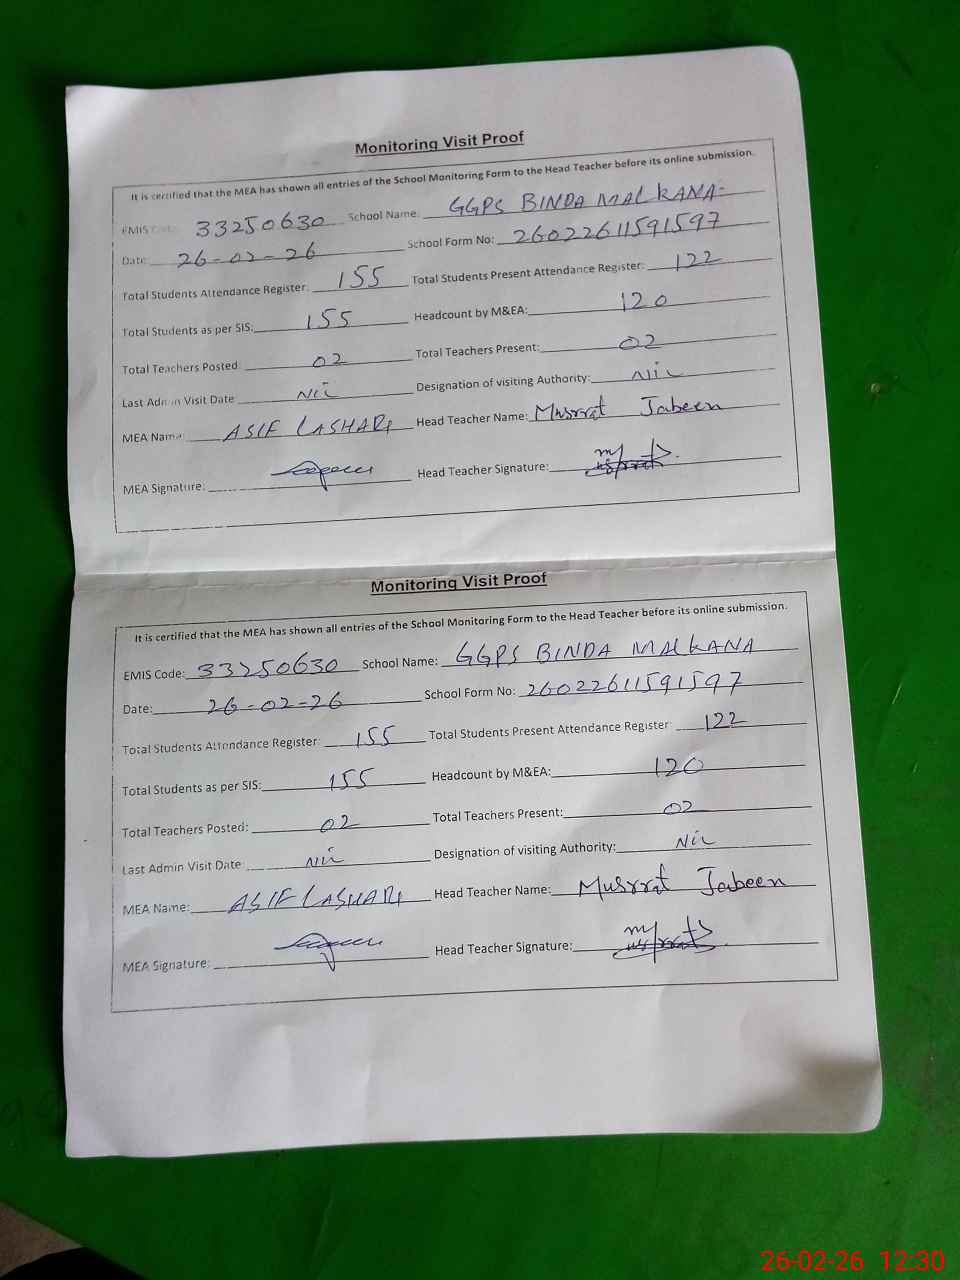 Monitoring Visit Proof
It is certified that the MEA has shown all entries of the School Monitoring Form to the Head Teacher before its online submission.
EMIS Code: 33250630 School Name: GGPS BINDA MALKANA
Date: 26-02-26 School Form No: 26022611591597
Total Students Attendance Register: 155 Total Students Present Attendance Register: 122
Total Students as per SIS: 155 Headcount by M&EA: 120
Total Teachers Posted: 02 Total Teachers Present: 02
Last Admin Visit Date Nil Designation of visiting Authority: Nil
MEA Name: ASIF LASHARI Head Teacher Name: Musrrat Jabeen
MEA Signature: Head Teacher Signature:
Monitoring Visit Proof
It is certified that the MEA has shown all entries of the School Monitoring Form to the Head Teacher before its online submission.
EMIS Code: 33250630 School Name: GGPS BINDA MALKANA
Date: 26-02-26 School Form No: 26022611591597
Total Students Attendance Register: 155 Total Students Present Attendance Register: 122
Total Students as per SIS: 155 Headcount by M&EA: 120
Total Teachers Posted: 02 Total Teachers Present: 02
Last Admin Visit Date: Nil Designation of visiting Authority: Nil
MEA Name: ASIF LASHARI Head Teacher Name: Musrrat Jabeen
MEA Signature: Head Teacher Signature:
26-02-26 12:30